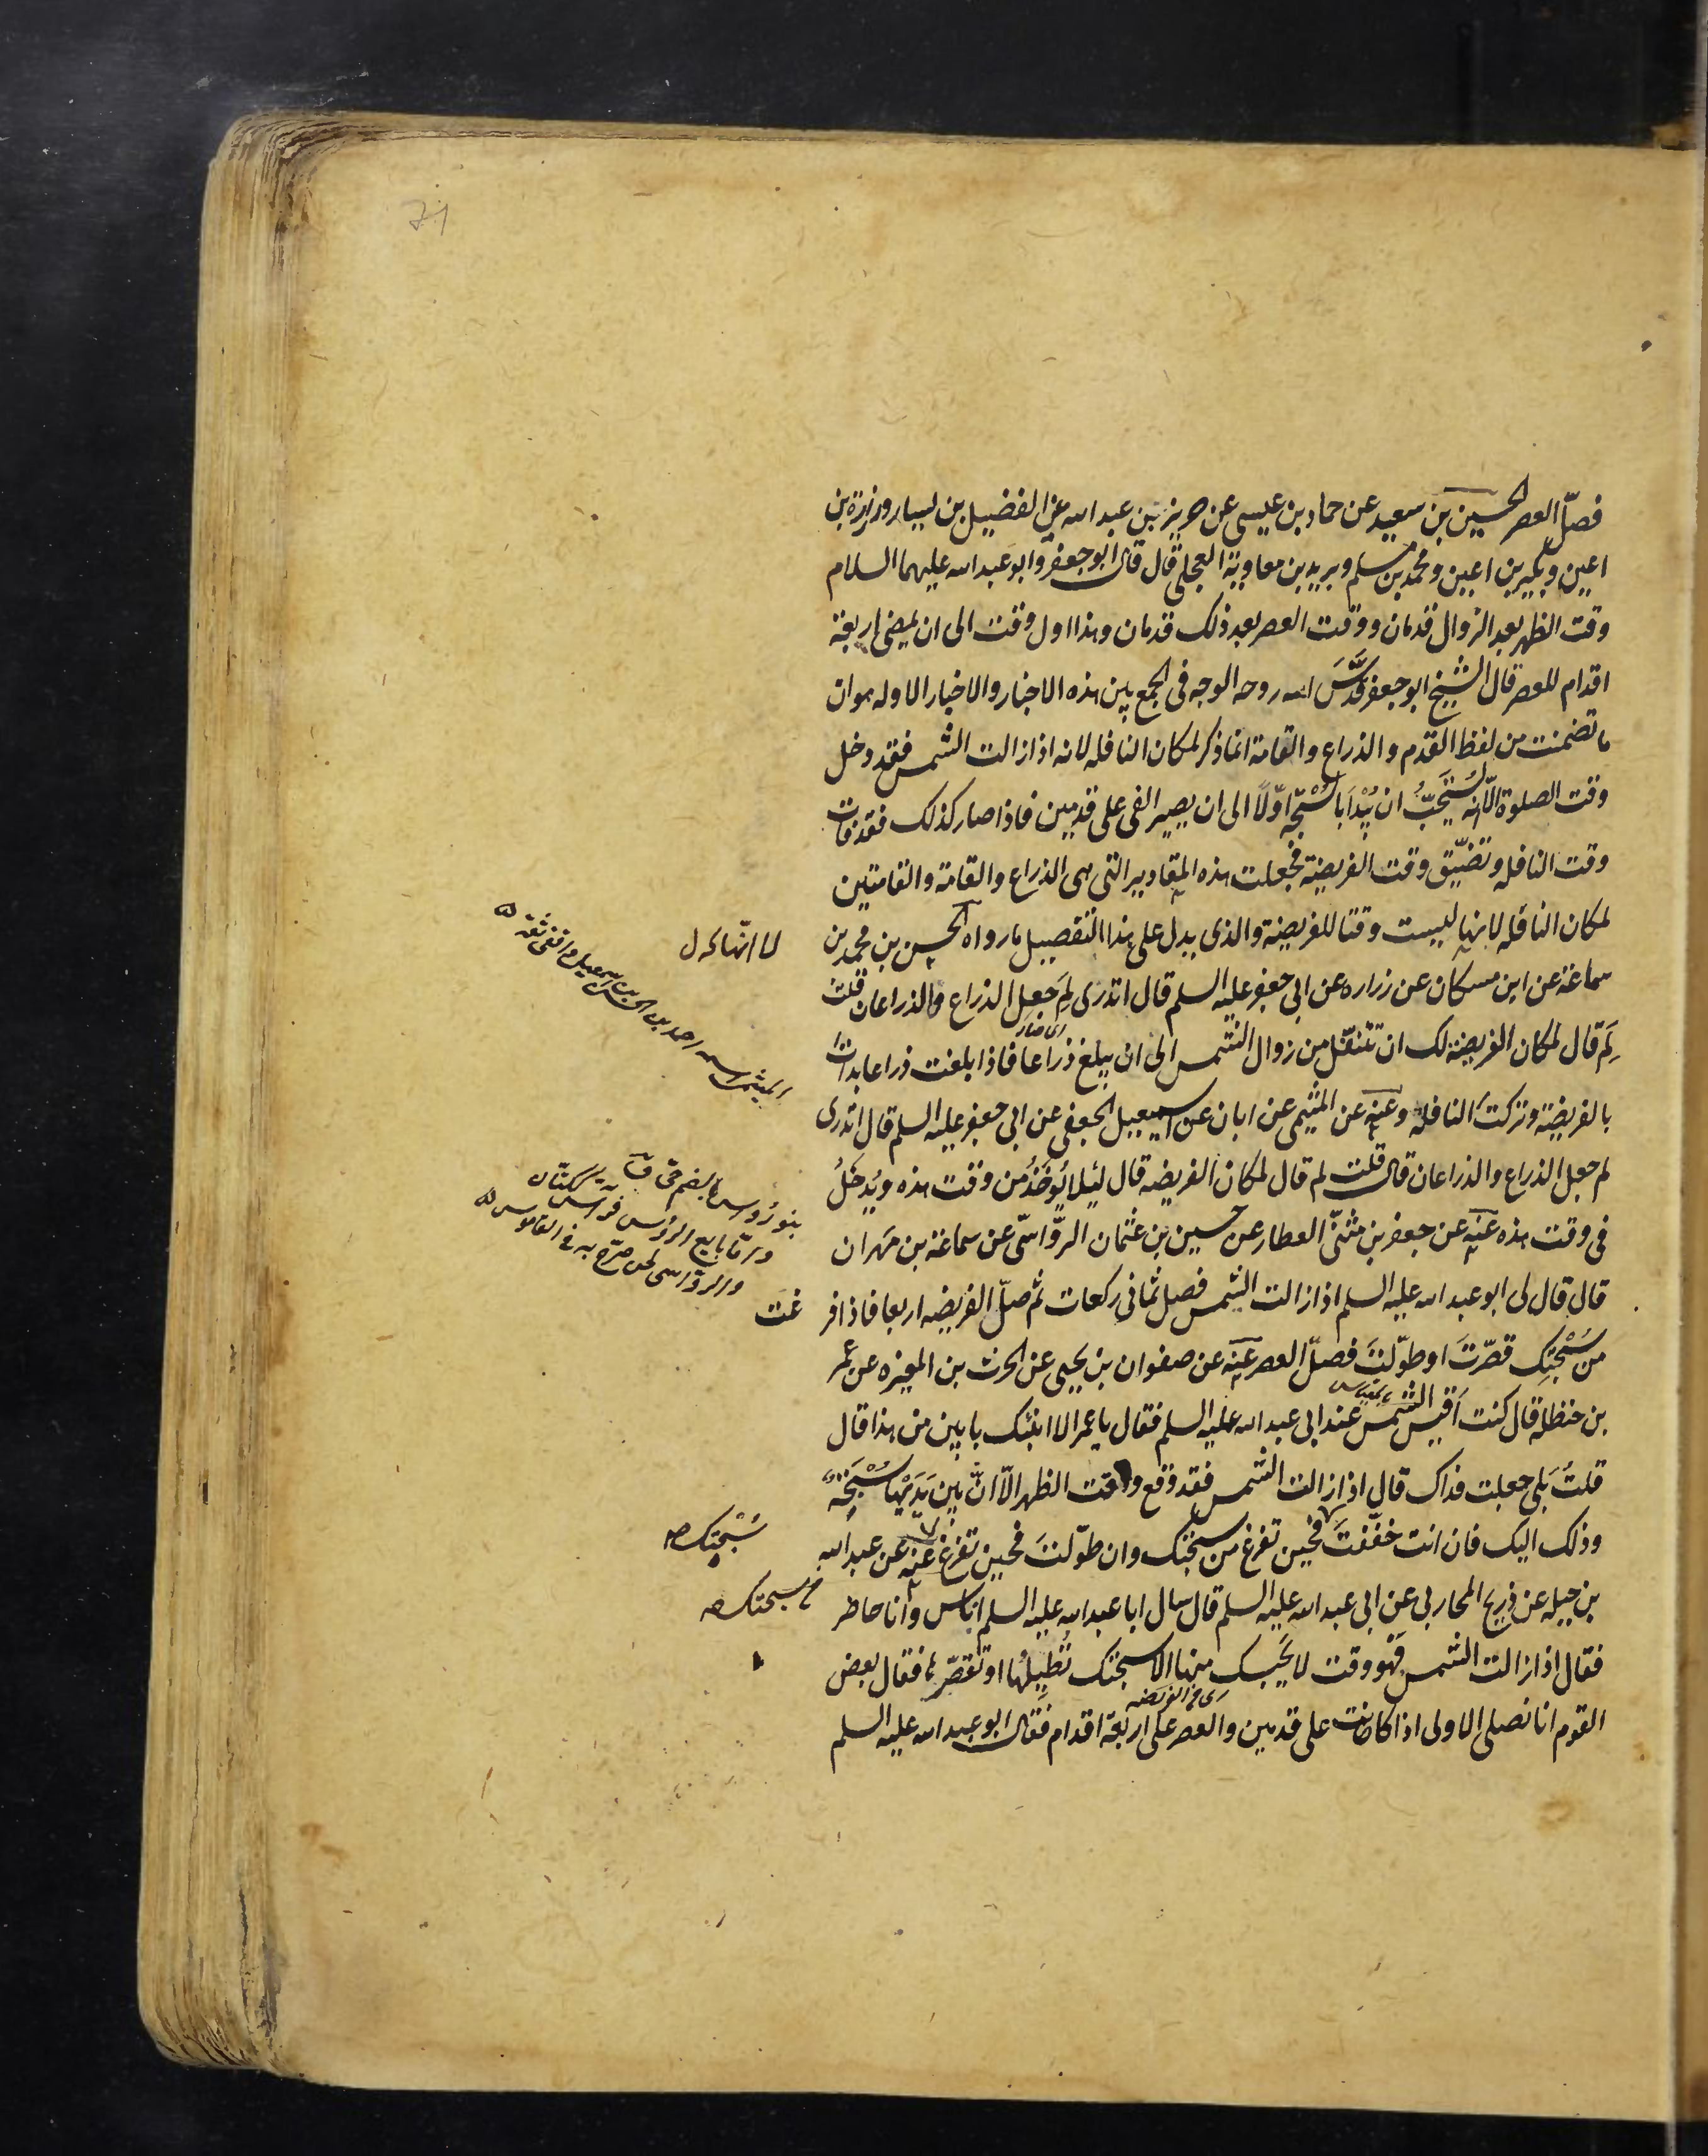 71
فصلّ العصر الحسين بن سعيد عن حماد بن عيسى عن حريز بن عبد الله عن الفضيل بن يسار وزرارة بن
اعين وبكير بن اعين ومحمد بن مسلم وبريد بن معاوية العجلى قال قال ابو جعفر وابو عبد الله عليهما السلام
وقت الظهر بعد الزوال قدمان ووقت العصر بعد ذلك قدمان وهذا اول وقت الى ان يمضى اربعة
اقدام للعصر قال الشيخ ابو جعفر قدَّسَ الله روحه الوجه فى الجمع بين هذه الاخبار والاخبار الاوله هو ان
ما تضمنت من لفظ القدم والذراع والقامة انما ذكر لمكان النافله لانه اذا زالت الشمس فقد دخل
وقت الصلوة الّا انه يُستَحَبُّ ان يُبْدَا بالسُّبْحَه اوّلًا الى ان يصير الفى على قدمين فاذا صار كذلك فقد فات
وقت النافله وتضيّق وقت الفريضة فجعلت هذه المقادير التى هى الذراع والقامة والقامتين
لمكان النافله لانها ليست وقتا للفريضة والذى يدل على هذا التفصيل ما رواه الحسن بن محمد بن
لا انّها كه ل
سماعة عن ابن مسكان عن زراره عن ابى جعفر عليه السلم قال اتدرى لِمَ جعل الذراع والذراعان قلت
الميثمى اسمه احمد بن الحسن بن اسمعيل واقفى ثقة
لِمَ قال لمكان الفريضة لك ان تتنفّل من زوال الشمس الى ان يبلغ ذراعا فاذا بلغت ذراعا بدات
بالفريضة وتركت النافله وعنه عن الميثمى عن ابان عن اسمعيل الجعفى عن ابى جعفر عليه السلم قال اتدرى
لم جعل الذراع والذراعان قال قلت لم قال لمكان الفريضه قال لئيلا يُوخَذُ من وقت هذه ويُدخَلُ
بنو رُوس بالضم حى
فى وقت هذه عنه عن جعفر بن مثنّى العطار عن حسين بن عثمان الروّاسّى عن سماعة بن مَهران
والرواسى لحن صرّح به فى القاموس
قال قال لى ابو عبد الله عليه السلم اذا زالت الشمس فصل ثمانى ركعات ثم صلّ الفريضه اربعا فاذا فر
غت
من سُبْحَتِك قصّرتَ او طوّلتَ فصلّ العصر عنه عن صفوان بن يحيى عن الحرث بن المغيره عن عمر
بن حنظله قال كنت اَقيس الشمس عند ابى عبد الله عليه السلم فقال يا عمر الا انبئك بابين من هذا قال
قلتُ بَلى جعلت فداك قال اذا زالت الشمس فقد وقع وقت الظهر الّا انّ بين يَدَيْها سُبْحَةً
وذلك اليك فان انت خفّفتَ فحين تفرغ من سبحتك وان طوّلتَ فحين تفرغ عنه عن عبد الله
سُبْحتِك
بن جبله عن ذريح المحاربى عن ابى عبد الله عليه السلم قال سال ابا عبد الله عليه السلم اناس وانا حاضر
سبحتك
فقال اذا زالت الشمس فهو وقت لا يَحبِسك منها الا سبحتك تُطِيلُها او تُقصّرها فقال بعض
القوم انا نصلى الاولى اذا كانت على قدمين والعصر على اربعة اقدام فقال ابو عبد الله عليه السلم